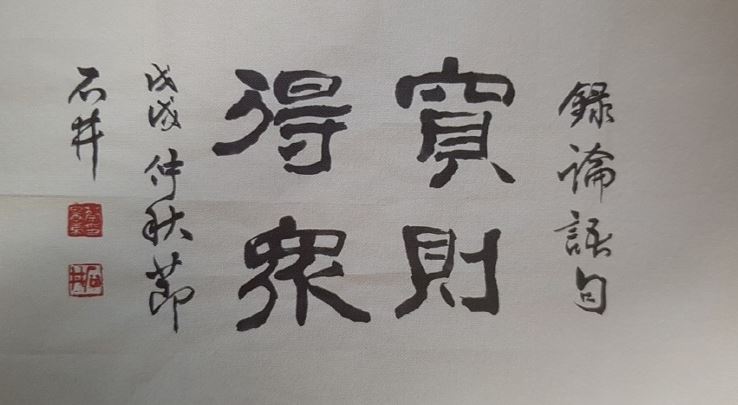 録論語句
寬則
得衆
戊戌仲秋節
石井
石井